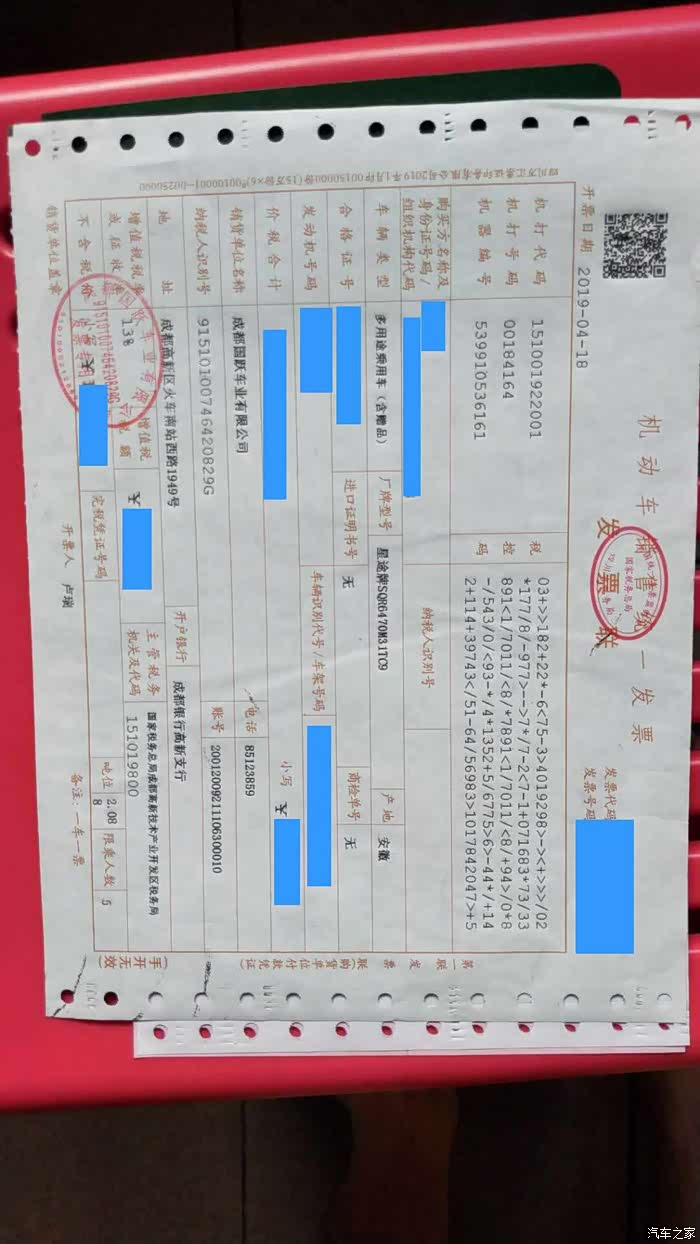 机动车销售统一发票
发票联
发票代码
发票号码
开票日期 2019-04-18
机打代码 151001922001
机打号码 00184164
机器编号 539910536161
税控码
03+>>182+22*-6<75-3>4019298>-><+>>>/02
*177/8/-977>-->7*/7-2<7-1+071683*73/33
891<1/7011/<8/*7891<1/7011/<8/+94>/0*8
-/543/0/<93-*/4*1352+5/6775>6>-44*/+14
2+114+39743</51-64/56983>1017842047>+5
购买方名称及
身份证号码/
组织机构代码
纳税人识别号
车辆类型 多用途乘用车(含赠品) 厂牌型号 星途牌SQR6470M31TC9 产地 安徽
合格证号 进口证明书号 无 商检单号 无
发动机号码 车辆识别代号/车架号码
价税合计 小写 ¥
销货单位名称 成都国跃车业有限公司 电话 85123859
纳税人识别号 91510100746420829G 账号 2001200921110630​0010
地址 成都高新区火车南站西路1949号 开户银行 成都银行高新支行
增值税税率
或征收率 13% 增值税
税额 ¥ 主管税务
机关及代码 国家税务总局成都高新技术产业开发区税务局
151019800
不含税价 小写 ¥ 完税凭证号码 吨位 2.08 限乘人数 5
8
销货单位盖章 开票人 卢瑞 备注:一车一票
第一联 发票联(购货单位付款凭证)
(手开无效)
国家税务总局
91510100746420829G
发票专用章
汽车之家